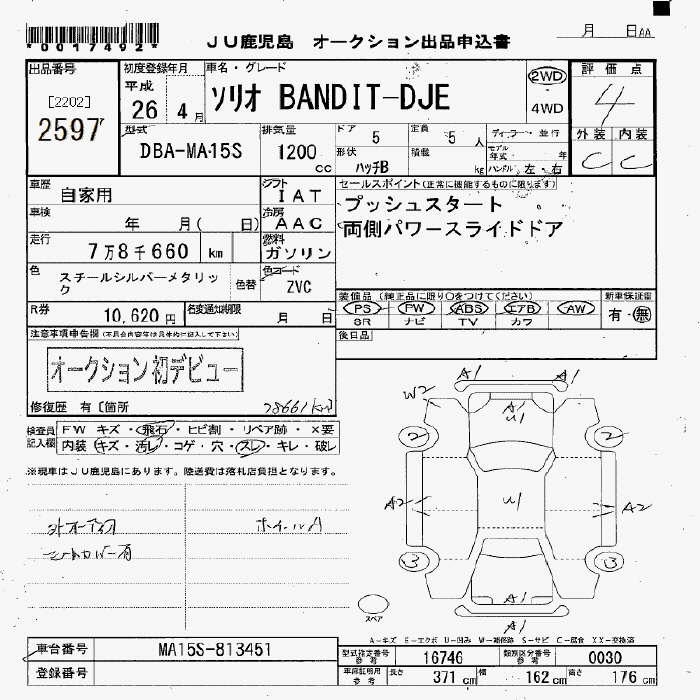 *0017492*
JU鹿児島 オークション出品申込書
月 日AA
出品番号 初度登録年月 車名・グレード 2WD 評価点
[2202] 平成 ソリオ BANDIT-DJE 4
2597 26 4月 4WD
外装 内装
C C
型式 排気量 ドア 定員 ディーラー・並行
DBA-MA15S 1200 5 5人 モデル年式 年
cc 形状 積載
ハッチB kg ハンドル 左・右
車歴 シフト セールスポイント(正常に機能するものに限ります)
自家用 IAT プッシュスタート
車検 冷房 両側パワースライドドア
年 月( 日) AAC
走行 燃料
7万8千660 km ガソリン
色 色替 色コード
スチールシルバーメタリック ZVC
装備品(純正品に限り○をつけてください) 新車保証書
R券 名変通知期限 PS PW ABS エアB AW 有・無
10,620円 月 日 SR ナビ TV カワ
注意事項申告欄(不具合内容等は具体的に記入して下さい) 後日品
オークション初デビュー
修復歴 有〔箇所 78661km〕
検査員記入欄 FW キズ・飛石・ヒビ割・リペア跡・×要
内装 キズ・汚レ・コゲ・穴・スレ・キレ・破レ
※現車はJU鹿児島にあります。陸送費は落札店負担となります。
ホイールA
A1 A1
W2
A1
U1
2 2
A2 U1 A2
3 3
A1
A1
スペア
A-キズ E-エクボ U-凹み W-補修跡 S-サビ C-腐食 XX-交換済
車台番号 MA15S-813451
登録番号
型式指定番号 参考 16746 類別区分番号 参考 0030
車庫証明用 参考 長さ 371cm 幅 162cm 高さ 176cm